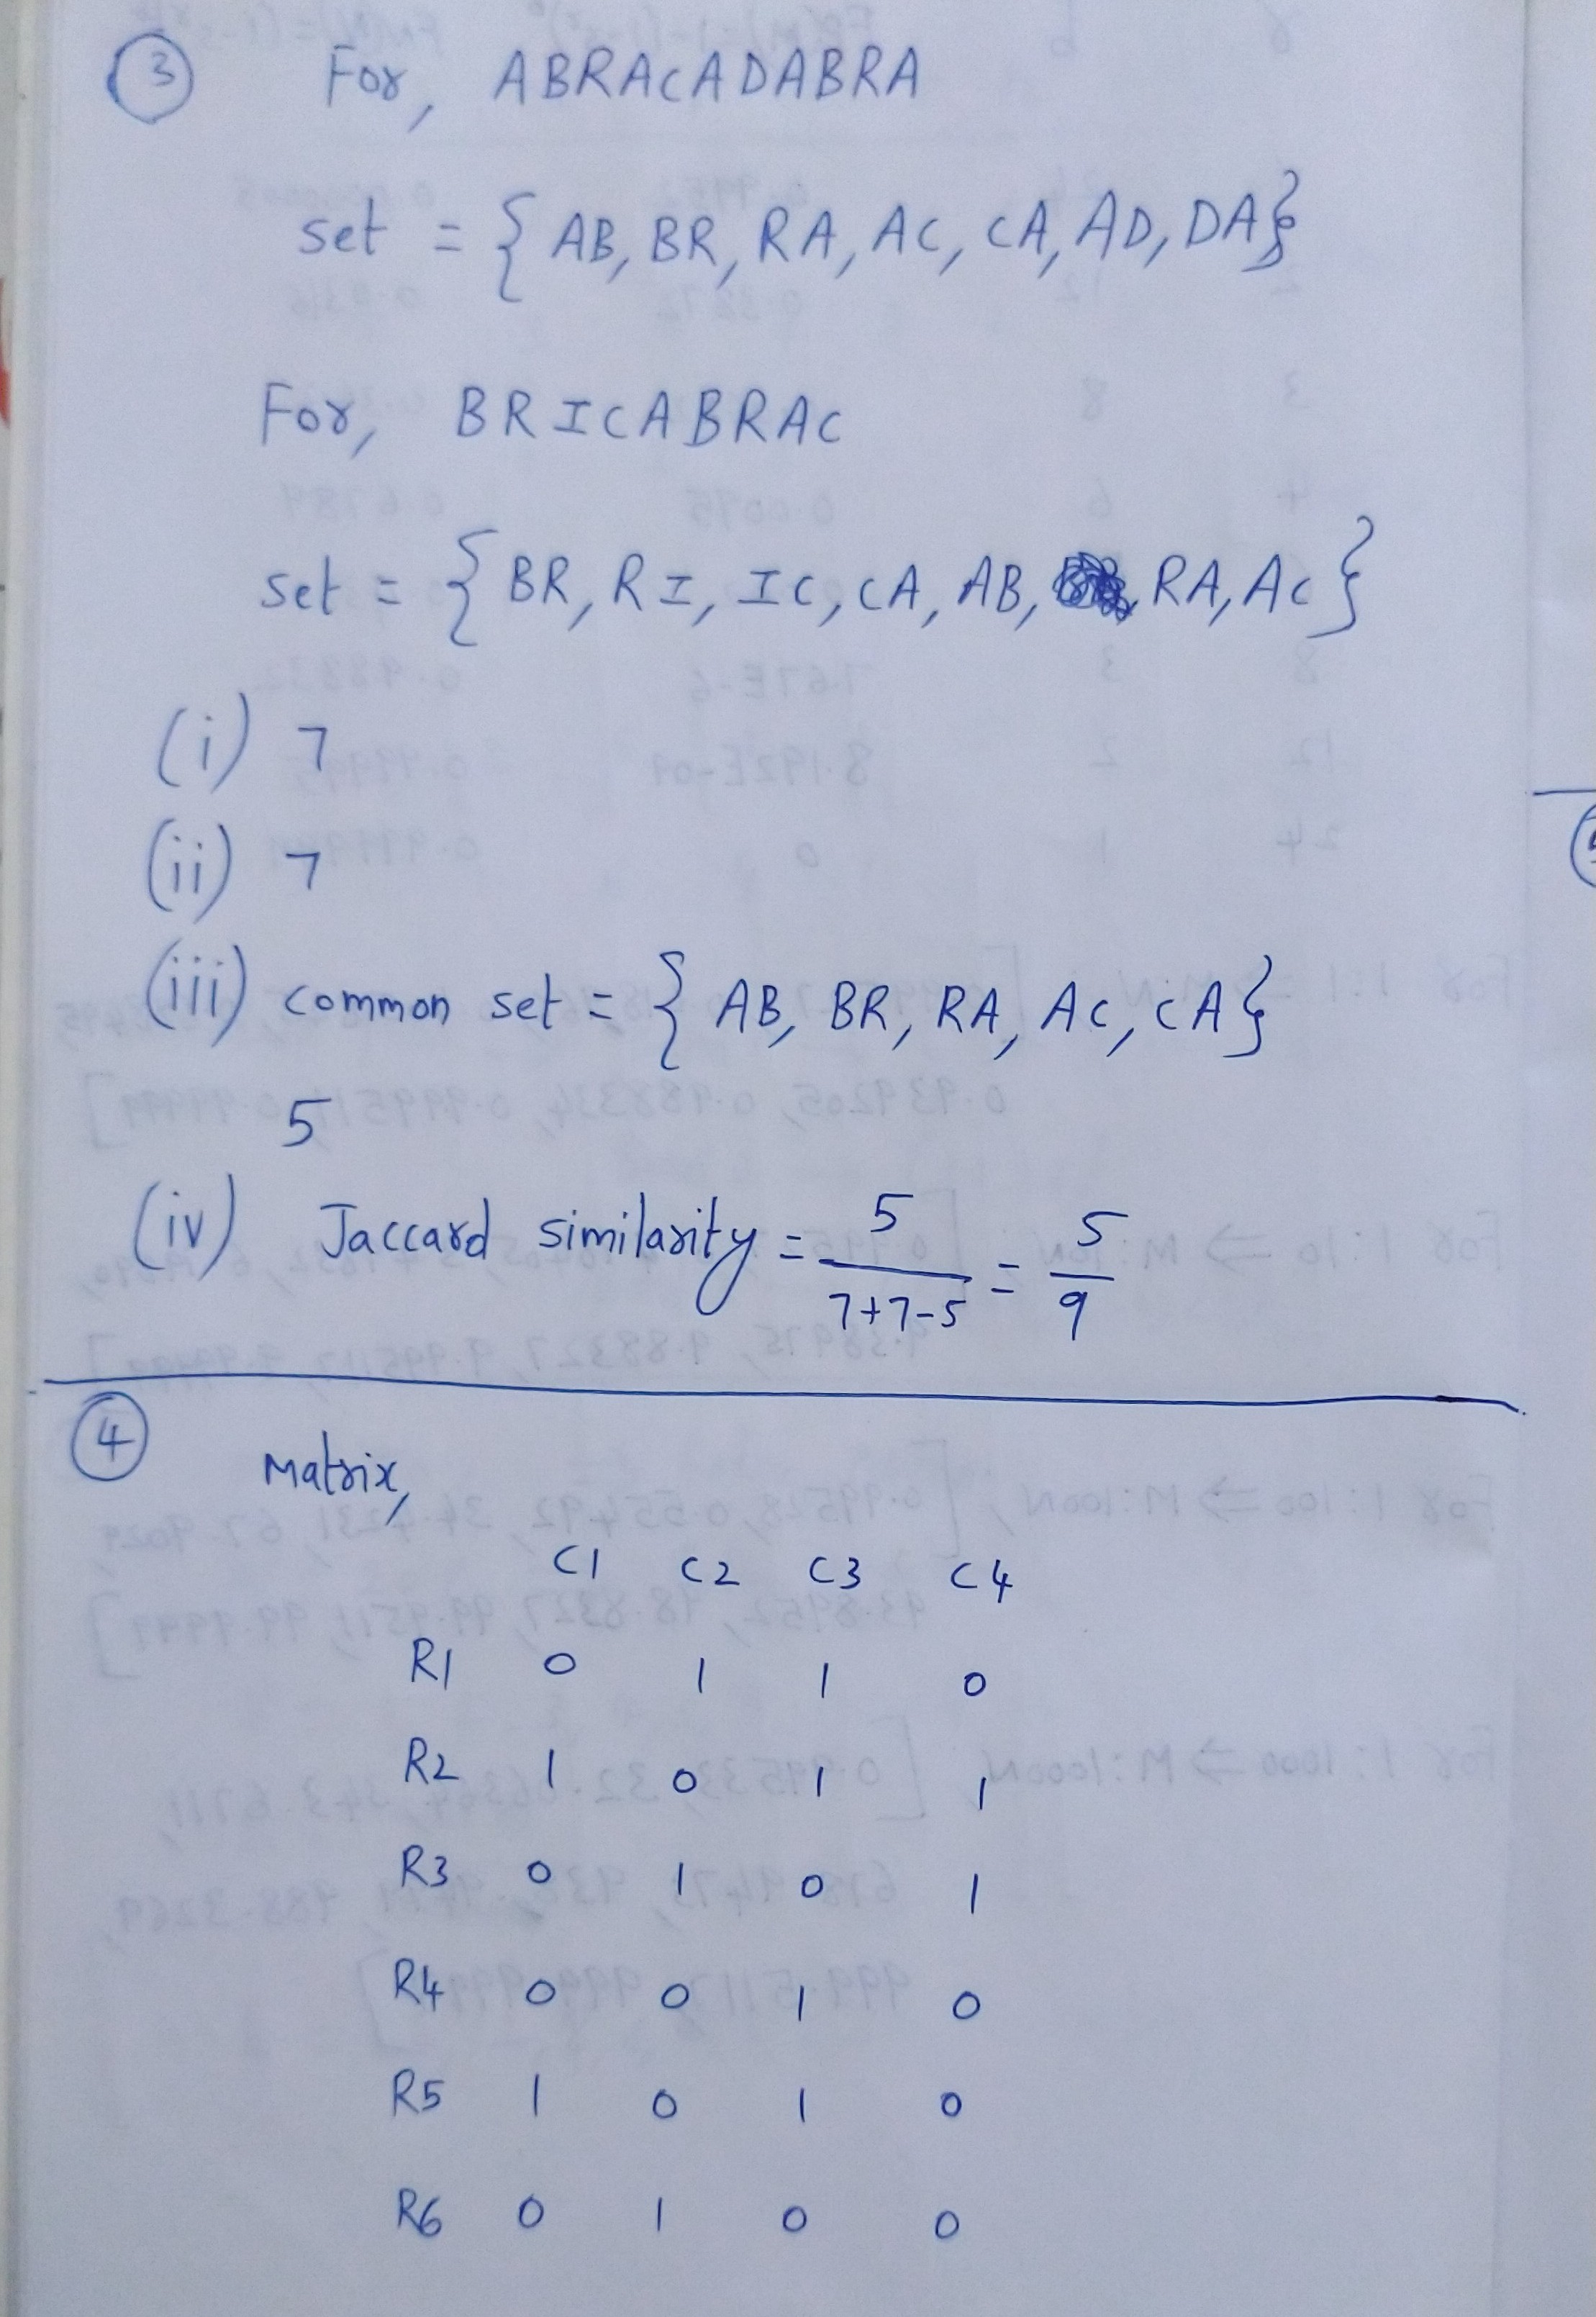 3 For, ABRACADABRA
set = { AB, BR, RA, AC, CA, AD, DA}
For, BRICABRAC
set = { BR, RI, IC, CA, AB, RA, AC }
(i) 7
(ii) 7
(iii) common set = { AB, BR, RA, AC, CA}
5
(iv) Jaccard similarity = 5 / 7+7-5 = 5 / 9
4 Matrix,
C1 C2 C3 C4
R1 0 1 1 0
R2 1 0 1 1
R3 0 1 0 1
R4 0 0 1 0
R5 1 0 1 0
R6 0 1 0 0